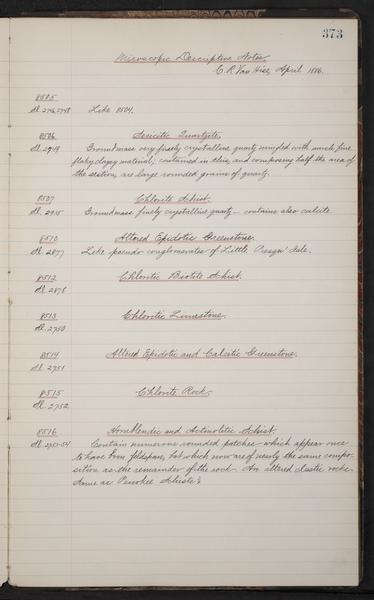 373
Microscopic Descriptive Notes.
C. R. Van Hise, April 1886.
8505
Sl. 2746, 2748 Like 8504.
8506 Sericitic Quartzite.
Sl. 2749 Groundmass very finely crystalline quartz mingled with much fine
flaky clayey material; contained in this, and composing half the area of
the section, are large rounded grains of quartz.
8507 Chlorite Schist.
Sl. 2915 Groundmass finely crystalline quartz - contains also calcite.
8510 Altered Epidotic Greenstone.
Sl. 2877 Like pseudo conglomerates of Little Presqu' Isle.
8512 Chloritic Biotite Schist.
Sl. 2878
8513 Chloritic Limestone.
Sl. 2750
8514 Altered Epidotic and Calcitic Greenstone.
Sl. 2751
8515 Chlorite Rock.
Sl. 2752
8516 Hornblendic and Actinolitic Schist.
Sl. 2753-54 Contain numerous rounded patches which appear once
to have been feldspars, but which now are of nearly the same compo-
sition as the remainder of the rock. An altered clastic rock.
Same as Penokee Schists?